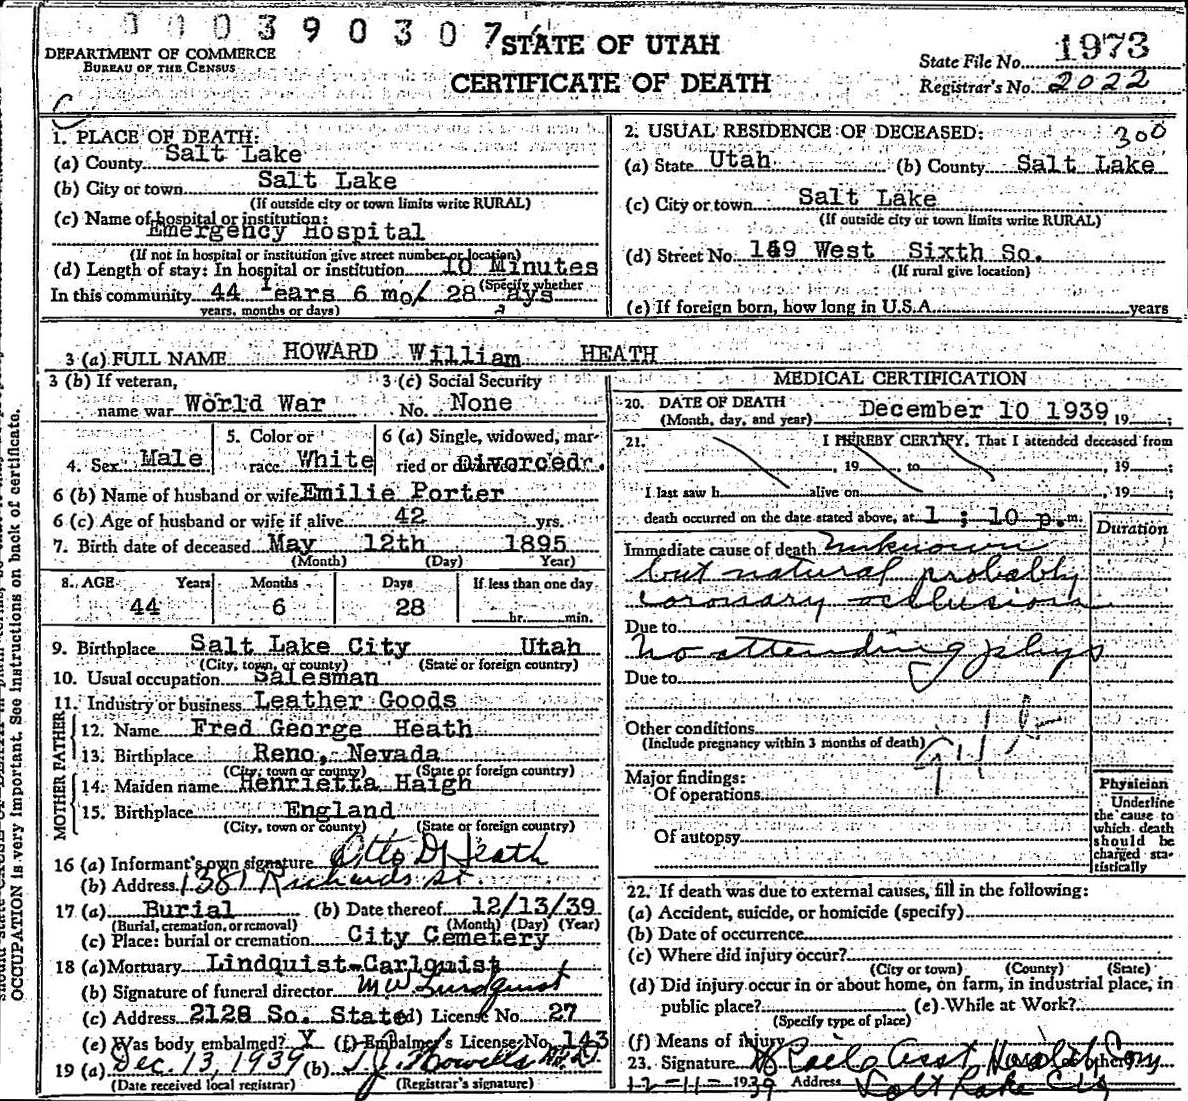 0 0 0 3 9 0 3 0 7
STATE OF UTAH
DEPARTMENT OF COMMERCE
BUREAU OF THE CENSUS
CERTIFICATE OF DEATH
State File No. 1973
Registrar's No. 2022
C
1. PLACE OF DEATH:
(a) County Salt Lake
(b) City or town Salt Lake
(If outside city or town limits write RURAL)
(c) Name of hospital or institution:
Emergency Hospital
(If not in hospital or institution give street number or location)
(d) Length of stay: In hospital or institution 10 Minutes
(Specify whether
In this community 44 Years 6 mo/ 28 days
years, months or days)
2. USUAL RESIDENCE OF DECEASED: 300
(a) State Utah (b) County Salt Lake
(c) City or town Salt Lake
(If outside city or town limits write RURAL)
(d) Street No. West Sixth So.
(If rural give location)
(e) If foreign born, how long in U.S.A. years
3 (a) FULL NAME HOWARD William HEATH
3 (b) If veteran, 3 (c) Social Security
name war World War No. None
4. Sex Male
5. Color or
race White
6 (a) Single, widowed, mar-
ried or divorced Divorced.
6 (b) Name of husband or wife Emilie Porter
6 (c) Age of husband or wife if alive 42 yrs.
7. Birth date of deceased May 12th 1895
(Month) (Day) Year)
8. AGE Years Months Days If less than one day
44 6 28 hr. min.
9. Birthplace Salt Lake City Utah
(City, town, or county) (State or foreign country)
10. Usual occupation Salesman
11. Industry or business Leather Goods
FATHER
12. Name Fred George Heath
13. Birthplace Reno, Nevada
(City, town or county) (State or foreign country)
MOTHER
14. Maiden name Henrietta Haigh
15. Birthplace England
(City, town or county) (State or foreign country)
16 (a) Informant's own signature Otto D Heath
(b) Address 1381 Richards St.
17 (a) Burial (b) Date thereof 12/13/39
(Burial, cremation, or removal) (Month) (Day) (Year)
(c) Place: burial or cremation City Cemetery
18 (a) Mortuary Lindquist-Carlquist
(b) Signature of funeral director M W Lundquist
(c) Address 2128 So. State (d) License No. 27
(e) Was body embalmed? X (f) Embalmer's License No. 143
19 (a) Dec. 13, 1939 (b) T. J. Howells M.D.
(Date received local registrar) (Registrar's signature)
MEDICAL CERTIFICATION
20. DATE OF DEATH
(Month, day, and year) December 10 1939, 19 ;
21. I HEREBY CERTIFY, That I attended deceased from
, 19 , to , 19 ;
I last saw h alive on , 19 ;
death occurred on the date stated above, at 1 ; 10 p.m.
Duration
Immediate cause of death unknown
but natural probably
coronary occlusion
Due to
No attending phys
Due to
Other conditions
(Include pregnancy within 3 months of death)
Major findings:
Of operations
Of autopsy
Physician
Underline
the cause to
which death
should be
charged sta-
tistically
22. If death was due to external causes, fill in the following:
(a) Accident, suicide, or homicide (specify)
(b) Date of occurrence
(c) Where did injury occur?
(City or town) (County) (State)
(d) Did injury occur in or about home, on farm, in industrial place, in
public place? (e) While at Work?
(Specify type of place)
(f) Means of injury
23. Signature Asst Health Com
12-11-1939 Address Salt Lake City
OCCUPATION is very important. See instructions on back of certificate.